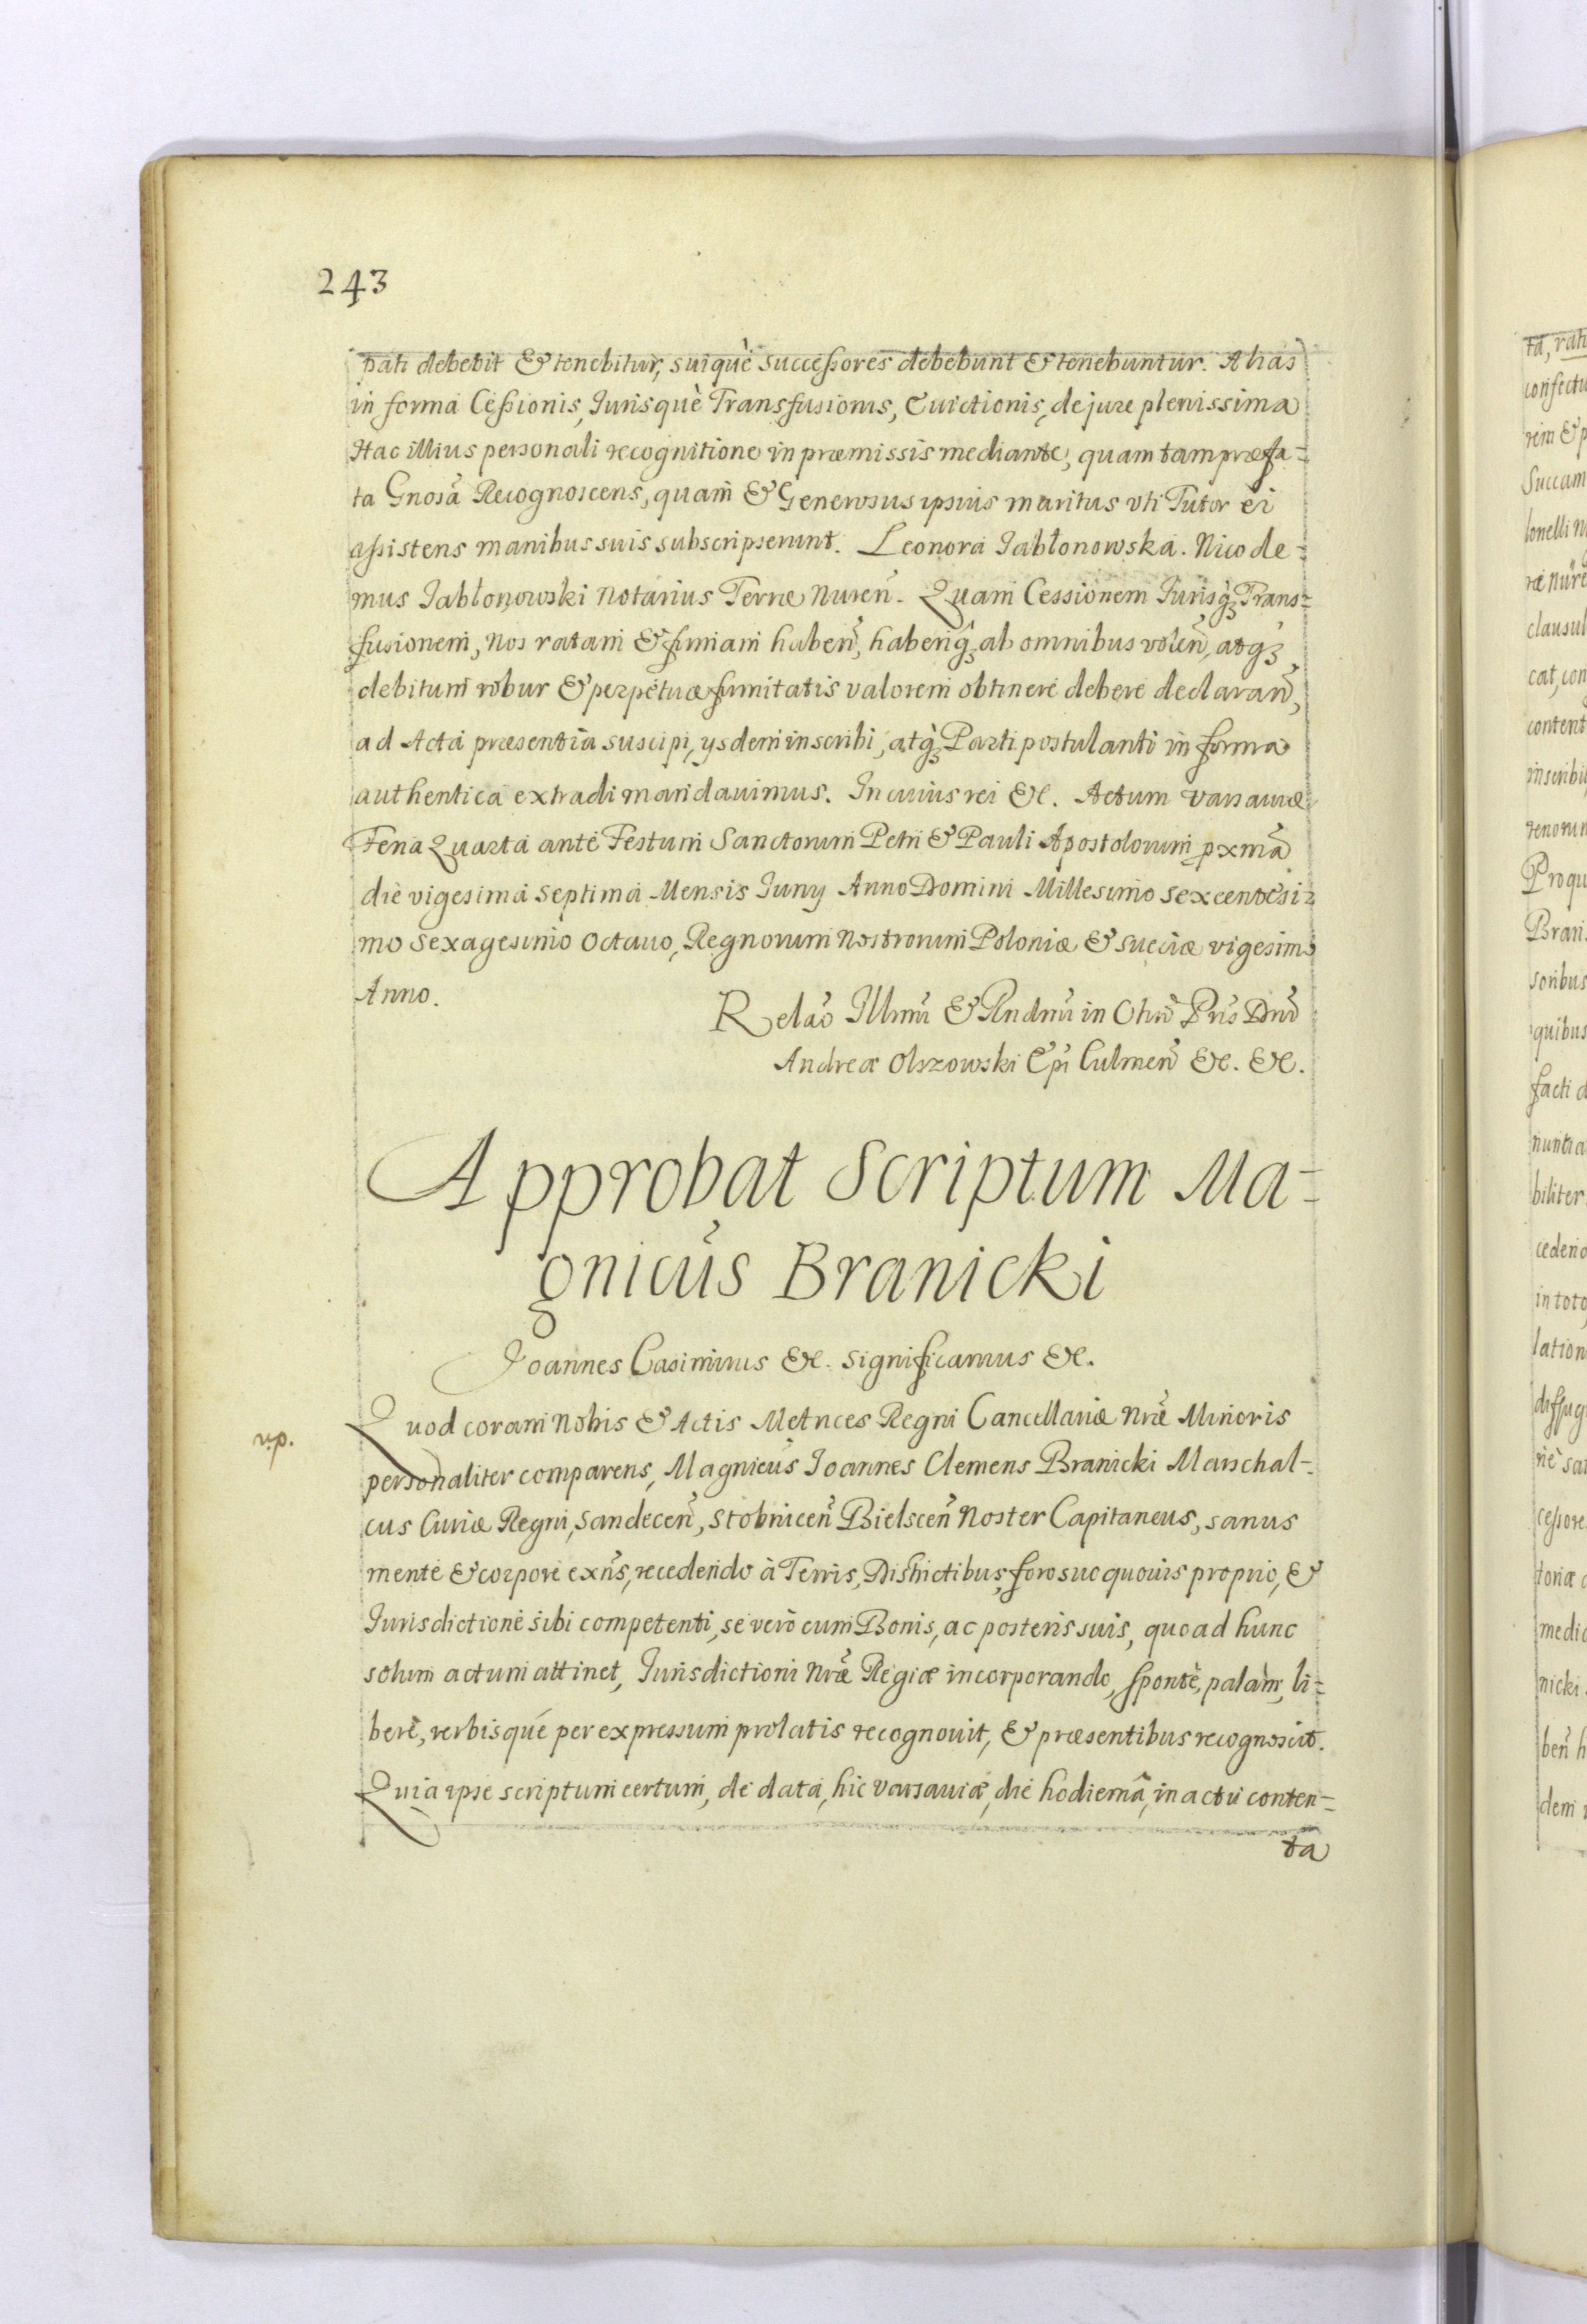 243
pati debebit & tenebitur, suiquè successores debebunt & tenebuntur. Alias
in forma Cessionis, Jurisquè Transfusionis, Euictionis, de jure plenissima
Hac illius personali recognitione in præmissis mediante, quam tam præfa=
ta Gnosã Recognoscens, quam & Generosus ipsius maritus vti Tutor ei
assistens manibus suis subscripserunt. Leonora Jabłonowska. Nicode=
mus Jabłonowski Notarius Terræ Nureñ. Quam Cessionem Jurisq3 Trans=
fusionem, Nos ratam & firmam habeñ, haberiq3 ab omnibus voleñ, atq3
debitum robur & perpetuæ firmitatis valorem obtinere debere declarañ,
ad Acta præsentia suscipi, ysdem inscribi, atq3 Parti postulanti in forma
authentica extradi mandauimus. In cuius rei &c. Actum Varsauiæ
Feria Quarta ante Festum Sanctorum Petri & Pauli Apostolorum pxmã
die vigesima septima Mensis Juny Anno Domini Millesimo sexcentesi=
mo sexagesimo octauo, Regnorum Nostrorum Poloniæ & Sueciæ vigesimo
Anno.
Relaõ Illmi & Rndmi in Chrõ Pris Dni
Andreæ Olszowski Epi Culmeñ &c. &c.
Approbat Scriptum Ma=
gnicus Branicki
Joannes Casimirus &c. significamus &c.
Quod coram Nobis & Actis Metrices Regni Cancellariæ Nræ Minoris
rp.
personaliter comparens, Magnicus Joannes Clemens Branicki Marschal=
cus Curiæ Regni, Sandeceñ, Stobniceñ Bielsceñ Noster Capitaneus, sanus
mente & corpore exñs, recedendo à Terris, Districtibus, foro suo quouis proprio, &
Jurisdictione sibi competenti, se verò cum Bonis, ac posteris suis, quoad hunc
solum actum attinet, Jurisdictioni Nræ Regiæ incorporando, spontè, palàm, li=
berè, verbisqué per expressum prolatis recognouit, & præsentibus recognoscit.
Quia ipse scriptum certum, de data, hic Varsauiæ, die hodiernâ, in actu conten=
ta